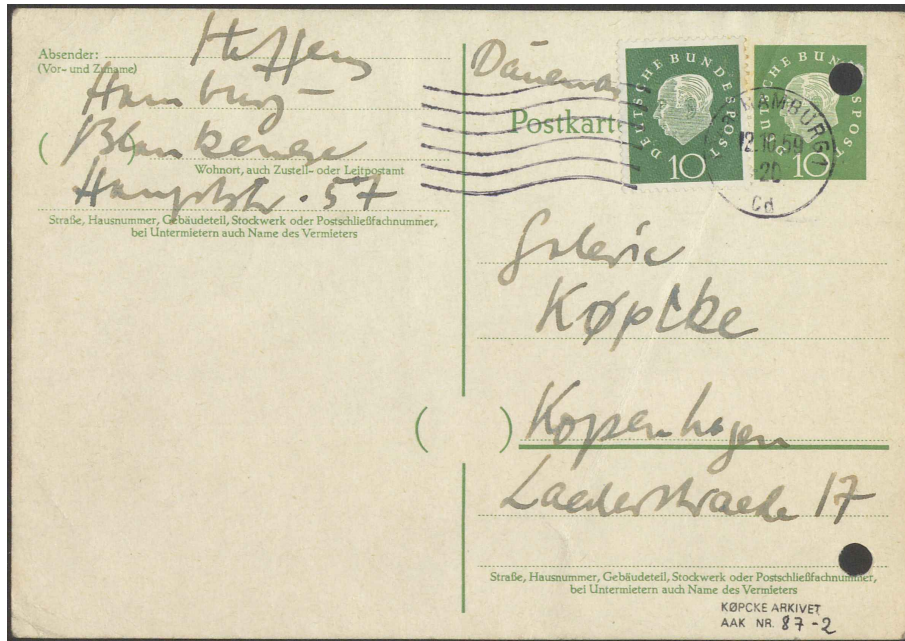 Absender:
(Vor- und Zuname)
Steffens
Hamburg-
Blankenese
Wohnort, auch Zustell- oder Leitpostamt
Hauptstr. 57
Straße, Hausnummer, Gebäudeteil, Stockwerk oder Postschließfachnummer,
bei Untermietern auch Name des Vermieters
Postkarte
DEUTSCHE BUNDESPOST
10
DEUTSCHE BUNDESPOST
10
HAMBURG 1
12.10.59
20
Cd
Galerie
Køpcke
Kopenhagen
Laederstraede 17
Straße, Hausnummer, Gebäudeteil, Stockwerk oder Postschließfachnummer,
bei Untermietern auch Name des Vermieters
KØPCKE ARKIVET
AAK NR. 87-2